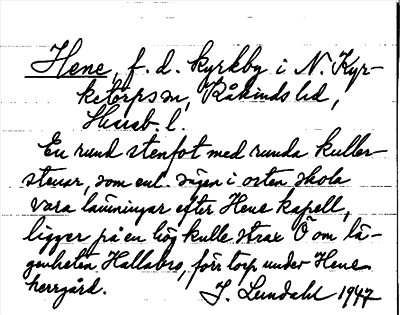 Hene, f. d. kyrkby i N. Kyr-
ketorps sn, Kåkinds hd,
Skarab. l.
En rund stenfot med runda kuller-
stenar, som enl. sägen i orten skola
vara lämningar efter Hene kapell,
ligger på en hög kulle strax Ö om lä-
genheten Hallabro, förr torp under Hene
herrgård. J. Lundahl 1947